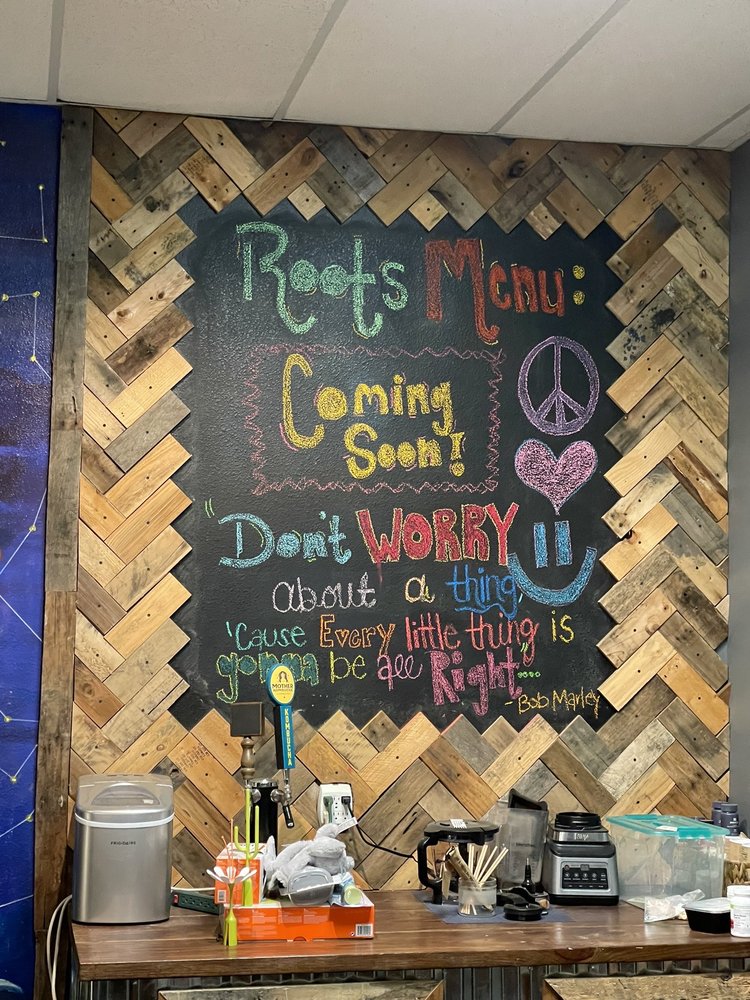 Roots Menu:
Coming
Soon!
"Don't WORRY
about a thing,
'Cause Every little thing is
gonna be all Right"....
- Bob Marley
MOTHER
KOMBUCHA
KOMBUCHA
FRIGIDAIRE